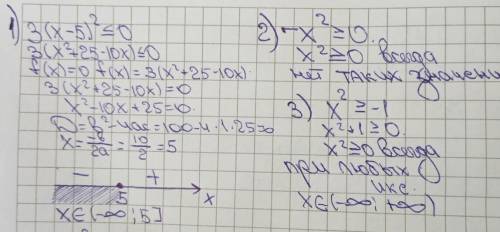 1) 3(x-5)² ≤ 0
3(x²+25-10x) ≤ 0
f(x)=0 f(x)=3(x²+25-10x)
3(x²+25-10x)=0
x²-10x+25=0
D=b²-4ac=100-4·1·25=0
x=-b/2a=10/2=5
- +
5 x
x∈(-∞;5]
2) -x² ≥ 0.
x² ≥ 0 всегда
нет таких значени
3) x² ≥ -1
x²+1 ≥ 0.
x² ≥ 0 всегда
при любых
икс.
x∈(-∞;+∞)